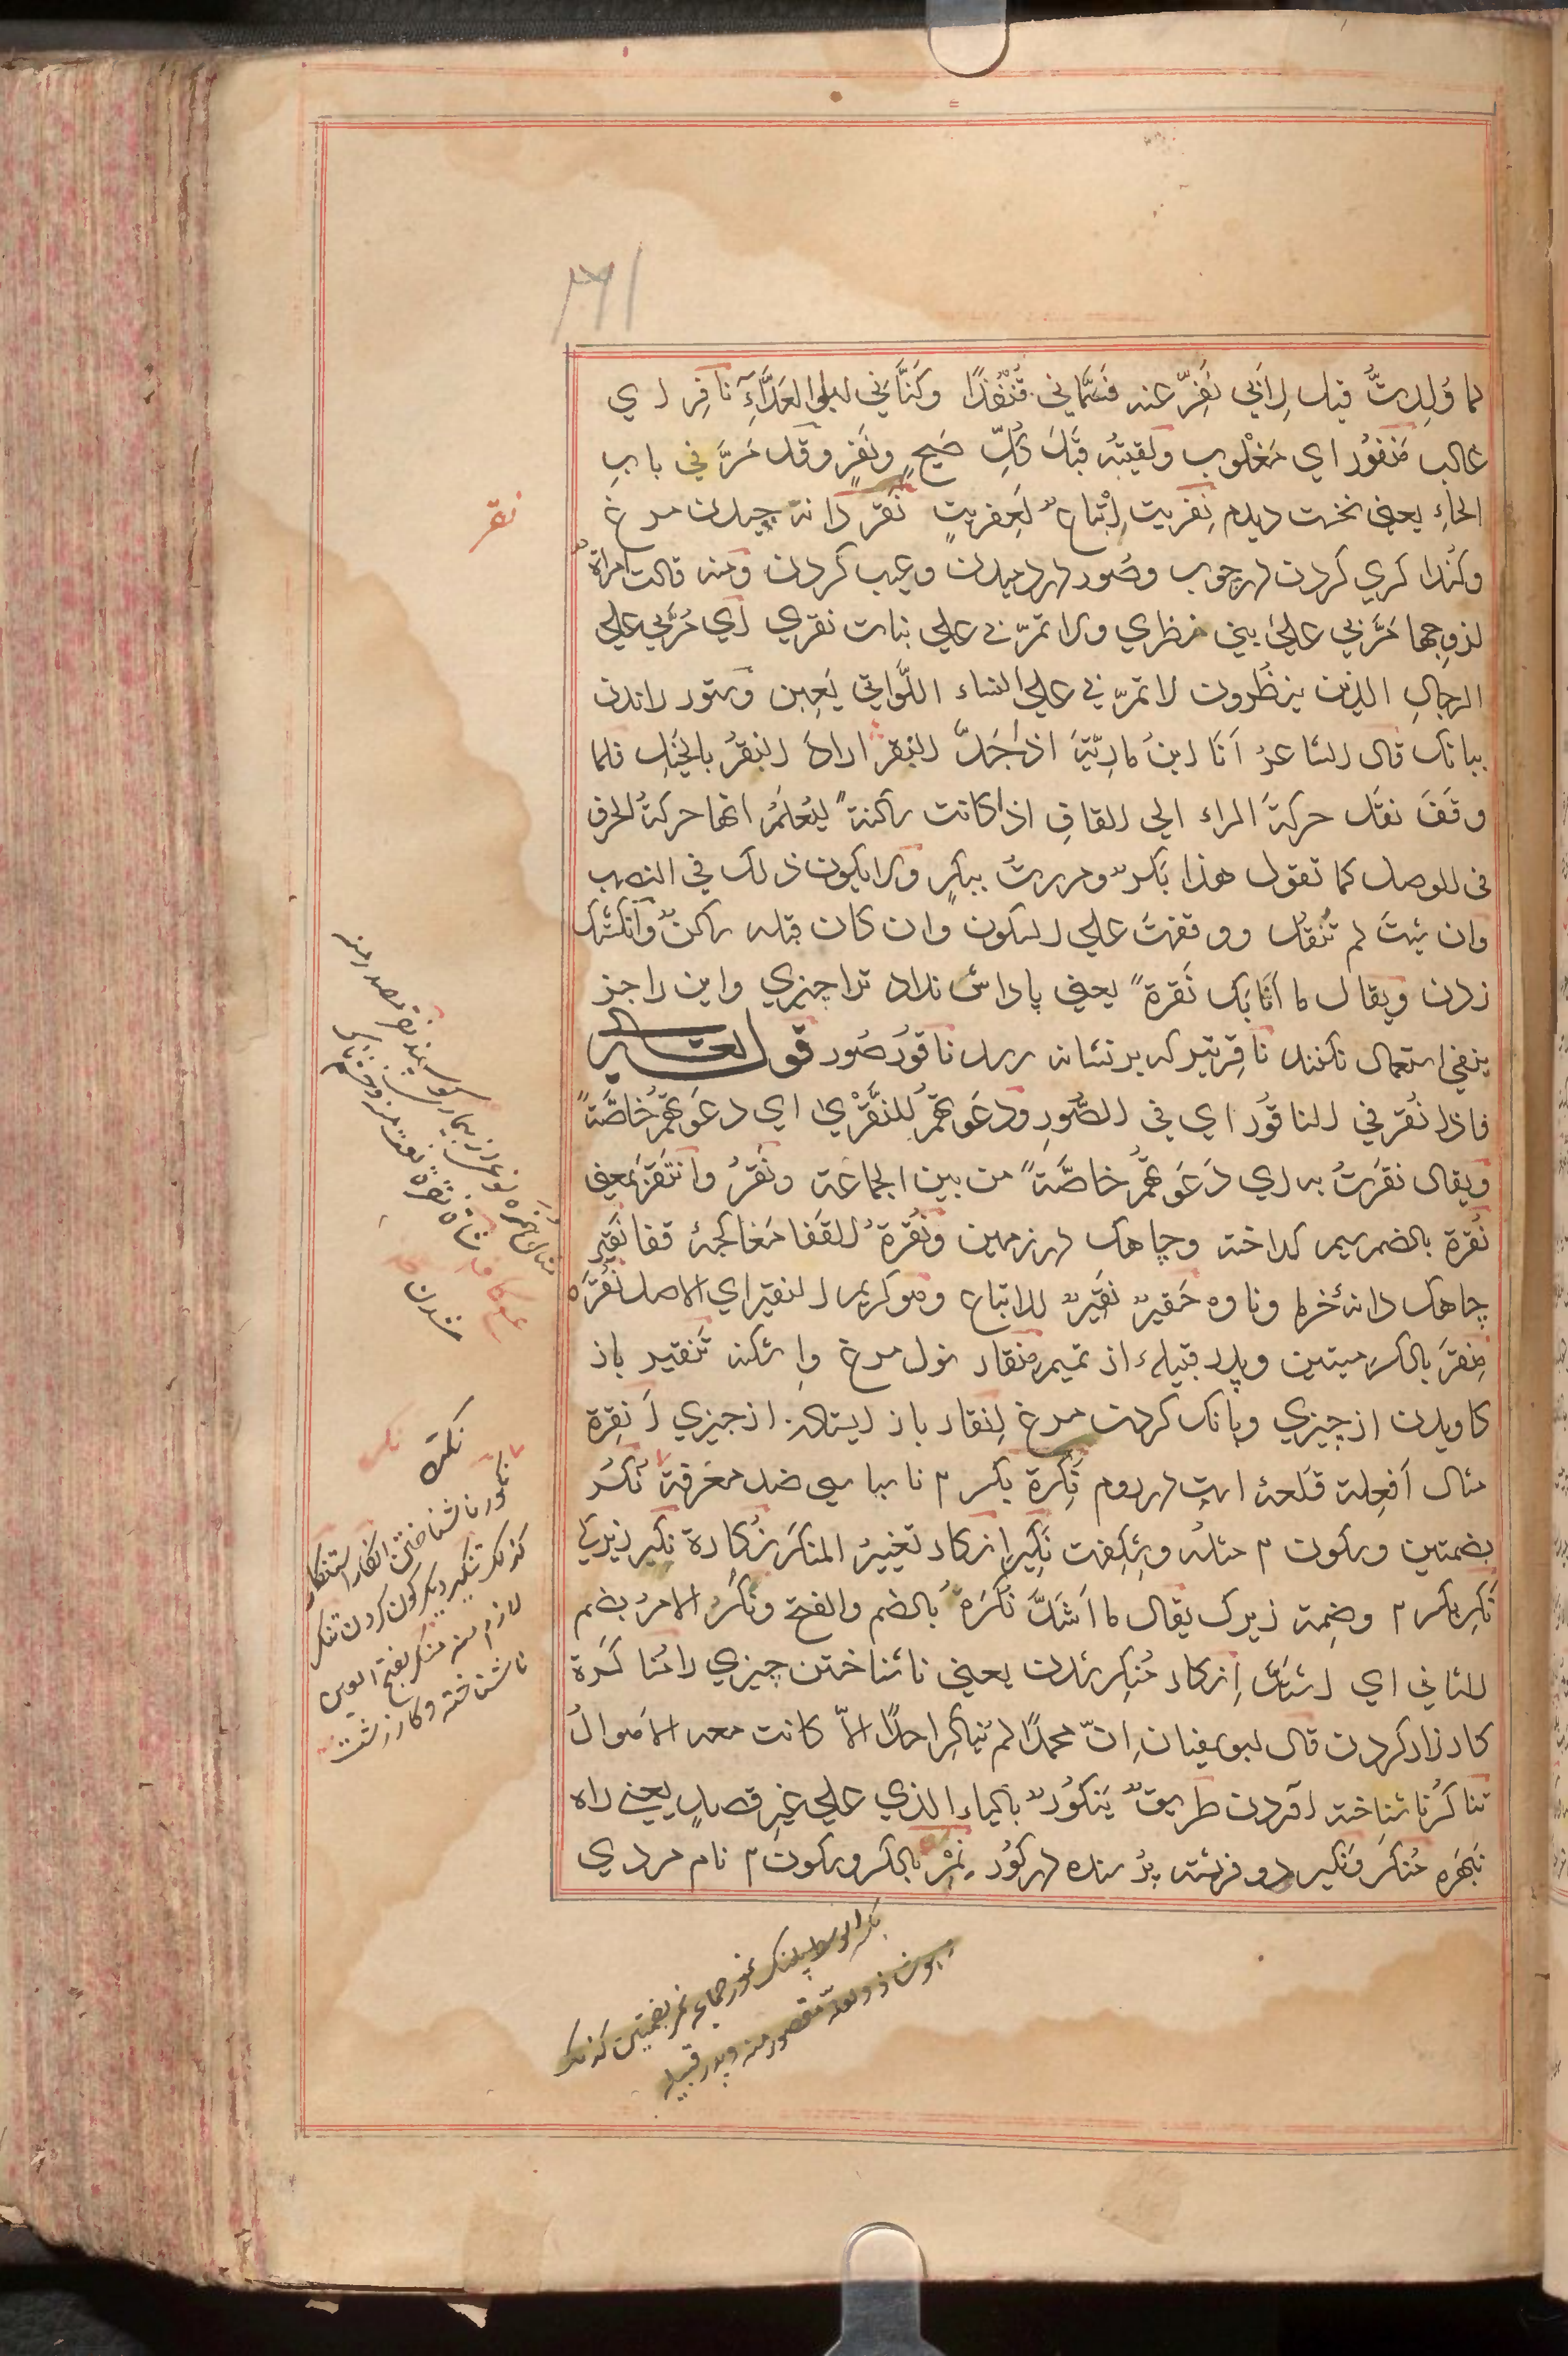 لما وُلِدتُّ قيل لِاَبي نَفِّرْ عنه فسَمّاني قُنْفُذًا وكَنَّاني ابو العَدَّاءِ نافِر اي
غالب مَنْفُور اي مَغْلوب ولقيتُه قَبْلَ كُلِّ صَيحٍ ونَفرٍ وقد مَرَّ في بابِ
الحاءِ يعني نخست ديدم نِفْريت اِتْباع لعِفريتٍ نَقْر دانه چيدن مرغ
وكُندا كري كردن در چوب وصُور در دميدن وعيب كردن ومنه قالت امراةٌ
لزوجها مُرَّ بي علي بني نظري ولا تمرّ بي علي بنات نقري اي مُرَّ بي علي
الرجالِ الذين ينظُرون لا تمرّ بي علي النساء اللَّواتي يَعِبن وستور راندن
ببانك قال الشاعرُ اَنَا ابنُ ماوِيَّةَ اذ جَدَّ النقُر اراد النقْرُ بالخَيلِ فلما
وقَفَ نقَل حركةَ الراء الي القافِ اذا كانت ساكنةً ليُعلَمُ انها حركةُ الحرف
في الوصل كما تقول هذا بَكُر ومررتُ ببكِر ولا يكون ذلك في النصب
وان شئتَ لم تَنْقُل ووقفتَ علي السكون وان كان قبله ساكن وانكشتك
زدن ويقال ما اَثابَك نَقرةً يعني پاداش نداد ترا چيزي واين را جز
بنفي استعمال نكنند ناقِر تيركه بر نشانه رسد ناقُور صُور قوله تعالي
فاذا نُقر في الناقُور اي في الصُّورِ ودعَوتهم للنَّقَرْي اي دعَوتهم خاصَّةً
ويقال نقرَتُ به اي دَعَوتهم خاصَّةً من بين الجماعة ونَقّرُ وانتقرَ بمعني
نُقرة بالضم سيم كداخته وچاهك در زمين ونُقْرةُ القَفا مَغاكچهٔ قفا نَقير
چاهك دانهٔ خرما وناوه حَقير نَقير للاتباع وهو كريم النقير اي الاصل نُقْرَه
مِنقَر بالكسر ميتين وپدر قبيلهء از تميم مِنقار نول مرغ واسكنه تَنْقير باز
كاويدن از چيزي وبانك كردن مرغ اِنقار باز ايستادن از چيزي اَنقِرة
مثال اَفعِلة قَلعهٔ است در روم نَكِرة بكسر ٢ ناسپاسي ضد معرفة نُكُر
بضمتين وسكون ٢ مثله وشكِفت نَكِير انكار تغييرُ المنكَر نُكارة نكير زيركي
نَكِر بكسر ٢ وضمه زيرك يقال ما اَشَدَّ نُكرَهُ بالضم والفتح ونَكُر الامرُ بضم
الثاني اي اشتَدَّ اِنكار مُنكِر شدن يعني ناشناختن چيزي را مُناكَرة
كارزار كردن قال ابو سفيان اِنّ محمدًا لم يُناكِر احدًا الاّ كانت معه الاَهْوالُ
تناكُر ناشناخته آوردن طريق يَنكُور بالياء الذي علي غيرِ قصدٍ يعني راه
نَبهَره مُنكَر ونَكير دو فرشته پُرسنده در كُور نِمْر بالكسر وسكون ٢ نام مردي
نقر
نكت
نكور ناشناختن انكار استنكار
كذلك تنكير ديكر كون كردن تنكر
لازم منه منكر بفتح العين
ناشناخته وكار زشت
بكسر الوسط پلنك نمور جماعة نمر بضمتين كذلك